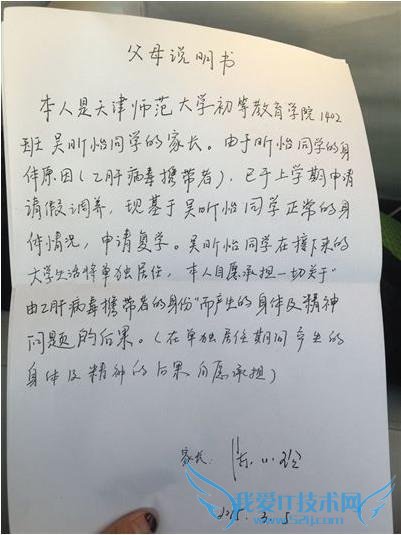 父母说明书
本人是天津师范大学初等教育学院1402
班吴昕怡同学的家长。由于昕怡同学的身
体原因（乙肝病毒携带者），已于上学期申请
请假调养，现基于吴昕怡同学正常的身
体情况，申请复学。吴昕怡同学在接下来的
大学生活将单独居住，本人自愿承担一切关于“
由乙肝病毒携带者的身份”而产生的身体及精神
问题的后果。（在单独居住期间产生的
身体及精神的后果自愿承担）
家长：
2015.3.5
我爱IT技术网
www.52ij.com